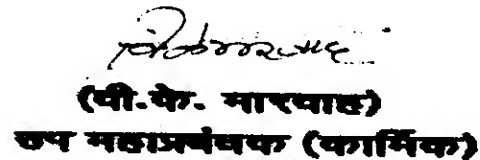 (वी.के. मारवाह)
उप महाप्रबंधक (कार्मिक)